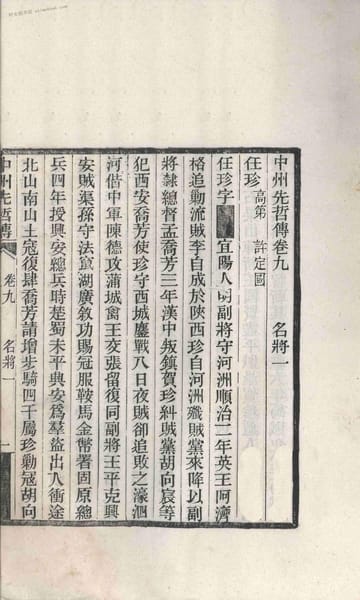 中州先哲傳卷九
名將一
任珍
高第 許定國
任珍字
宜陽人明副將守河洲順治二年英王阿濟
格追勦流賊李自成於陝西珍自河洲殲賊黨來降以副
將隸總督孟喬芳三年漢中叛鎮賀珍糾賊黨胡向宸等
犯西安喬芳使珍守西城鏖戰八日夜賊卻追敗之濠泗
河偕中軍陳德攻蒲城禽王交張留復同副將王平克興
安賊渠孫守法竄湖廣敘功賜冠服鞍馬金幣署固原總
兵四年授興安總兵時楚蜀未平興安爲羣盜出入衝途
北山南山土寇復肆喬芳請增步騎四千屬珍勦寇胡向
中州先哲傳
卷九 名將一
一